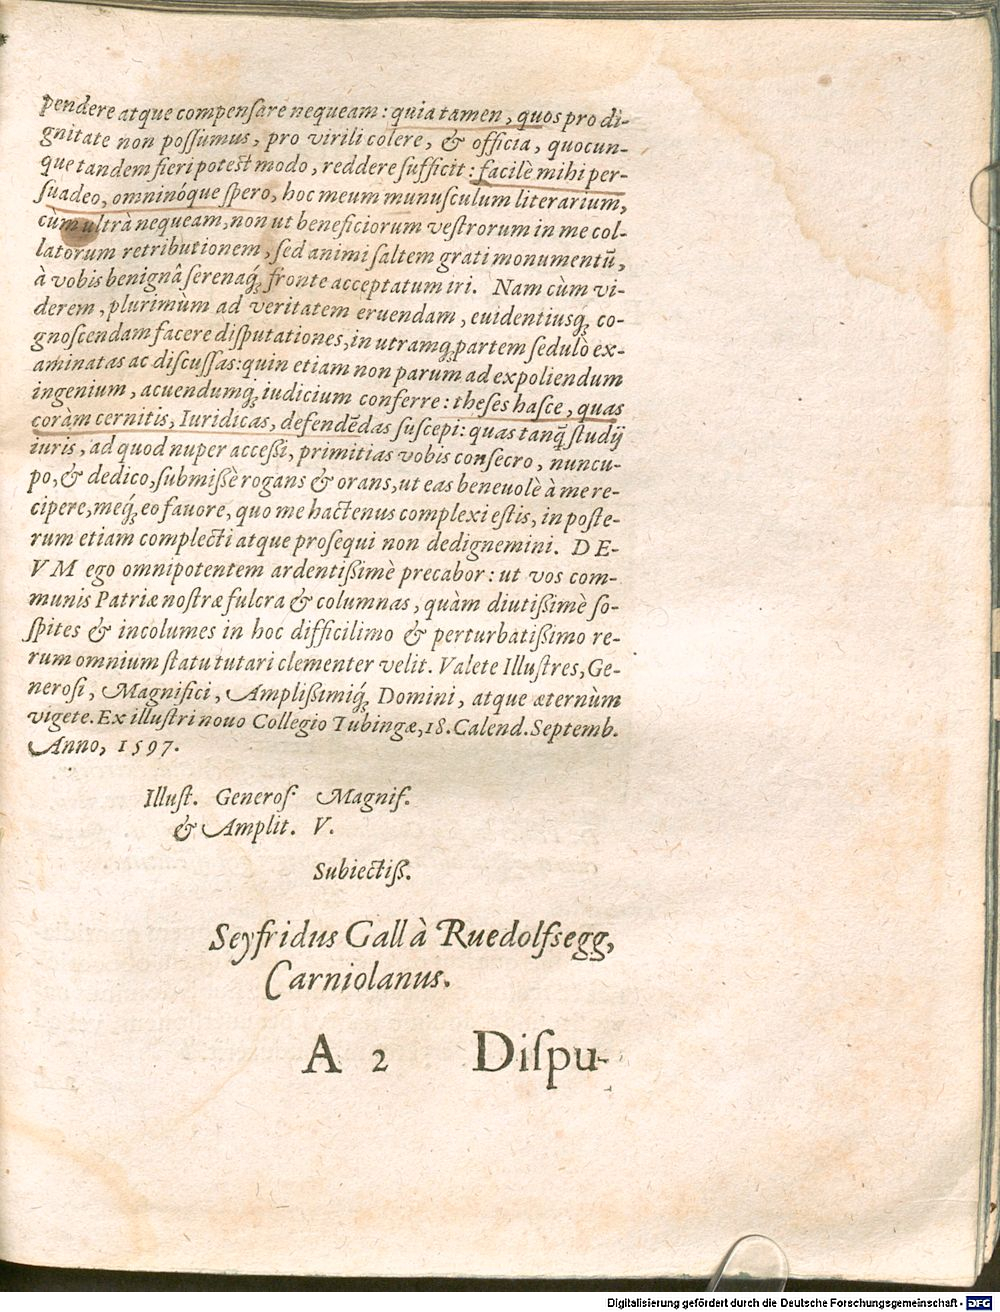 pendere atque compenſare nequeam: quia tamen, quos pro di-
gnitate non poſſumus, pro virili colere, & officia, quocun-
que tandem fieri poteſt modo, reddere ſufficit: facilè mihi per-
ſuadeo, omninóque ſpero, hoc meum munuſculum literarium,
cùm ultrà nequeam, non ut beneficiorum veſtrorum in me col-
latorum retributionem, ſed animi ſaltem grati monumentū,
à vobis benignâ ſerenaq́; fronte acceptatum iri. Nam cùm vi-
derem, plurimùm ad veritatem eruendam, euidentiusq́; co-
gnoſcendam facere diſputationes, in utramq́; partem ſedulò ex-
aminatas ac diſcuſſas: quin etiam non parum ad expoliendum
ingenium, acuendumq́; iudicium conferre: theſes haſce, quas
coràm cernitis, Iuridicas, defendēdas ſuſcepi: quas tanq̃ ſtudij
iuris, ad quod nuper acceßi, primitias vobis conſecro, nuncu-
po, & dedico, ſubmißè rogans & orans, ut eas beneuolè à me re-
cipere, meq́; eo fauore, quo me hactenus complexi eſtis, in poſte-
rum etiam complecti atque proſequi non dedignemini. DE-
VM ego omnipotentem ardentißimè precabor: ut vos com-
munis Patriæ noſtræ fulcra & columnas, quàm diutißimè ſo-
ſpites & incolumes in hoc difficilimo & perturbatißimo re-
rum omnium ſtatu tutari clementer velit. Valete Illuſtres, Ge-
neroſi, Magnifici, Amplißimiq́; Domini, atque æternùm
vigete. Ex illuſtri nouo Collegio Tubingæ, 18. Calend. Septemb.
Anno, 1597.
Illuſt. Generoſ. Magnif.
& Amplit. V.
Subiectiß.
Seyfridus Gall à Ruedolfsegg,
Carniolanus.
A 2 Diſpu-
Digitalisierung gefördert durch die Deutsche Forschungsgemeinschaft - DFG